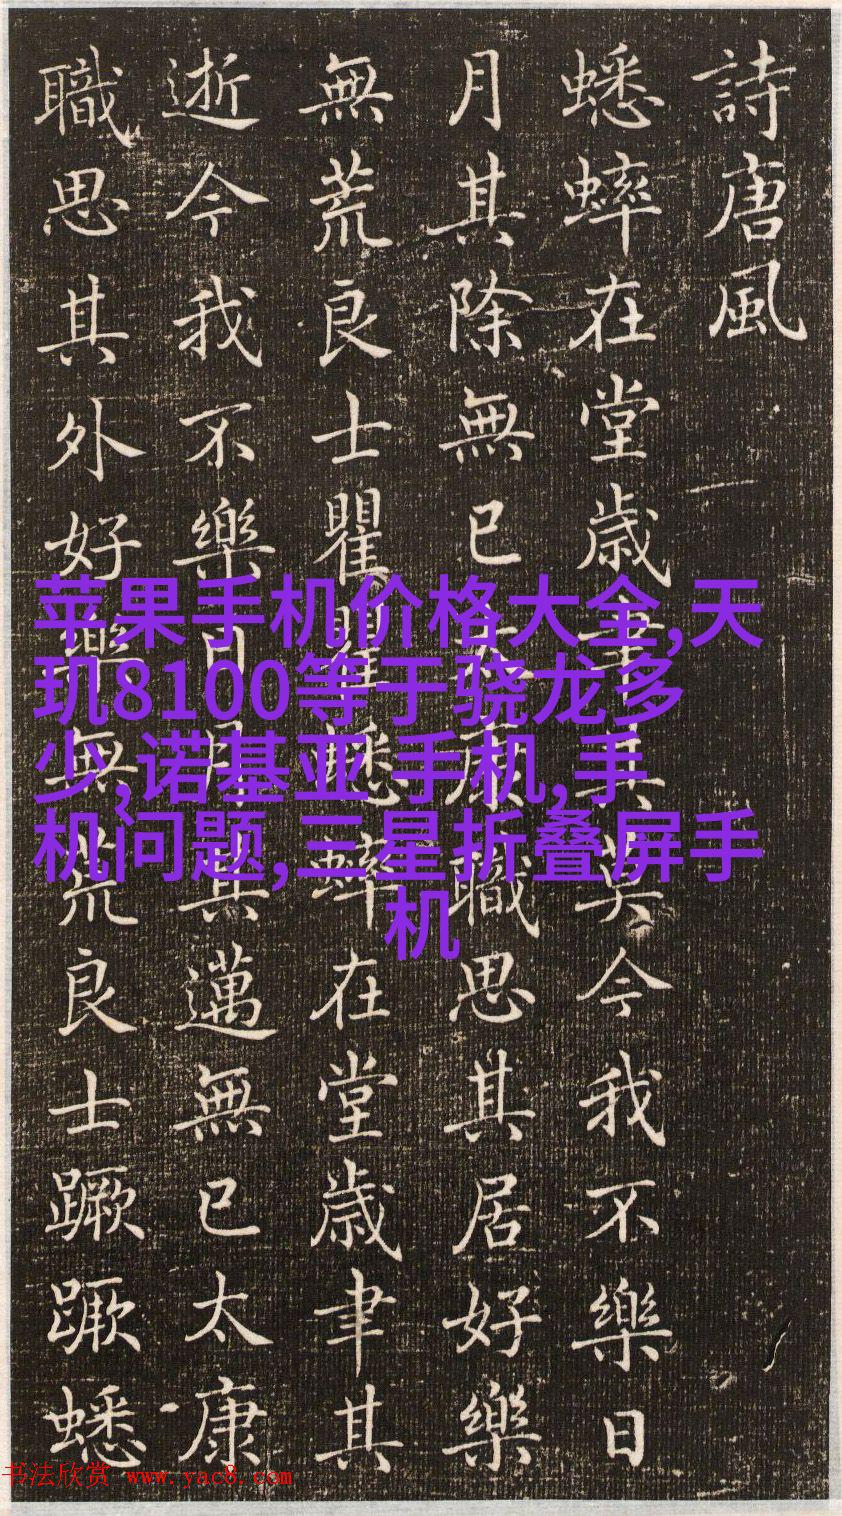 詩唐風
蟋蟀在堂歲聿其莫今我不樂日
月其除無已太康職思其居好樂
無荒良士瞿瞿蟋蟀在堂歲聿其
逝今我不樂日月其邁無已太康
職思其外好樂無荒良士蹶蹶蟋
苹果手机价格大全,天
玑8100等于骁龙多
少,诺基亚 手机,手
机问题,三星折叠屏手
机
书法欣赏 www.yac8.com